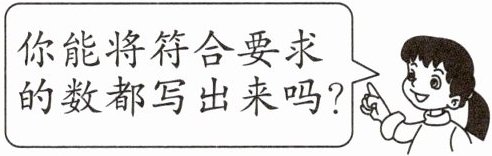 你能将符合要求
的数都写出来吗?